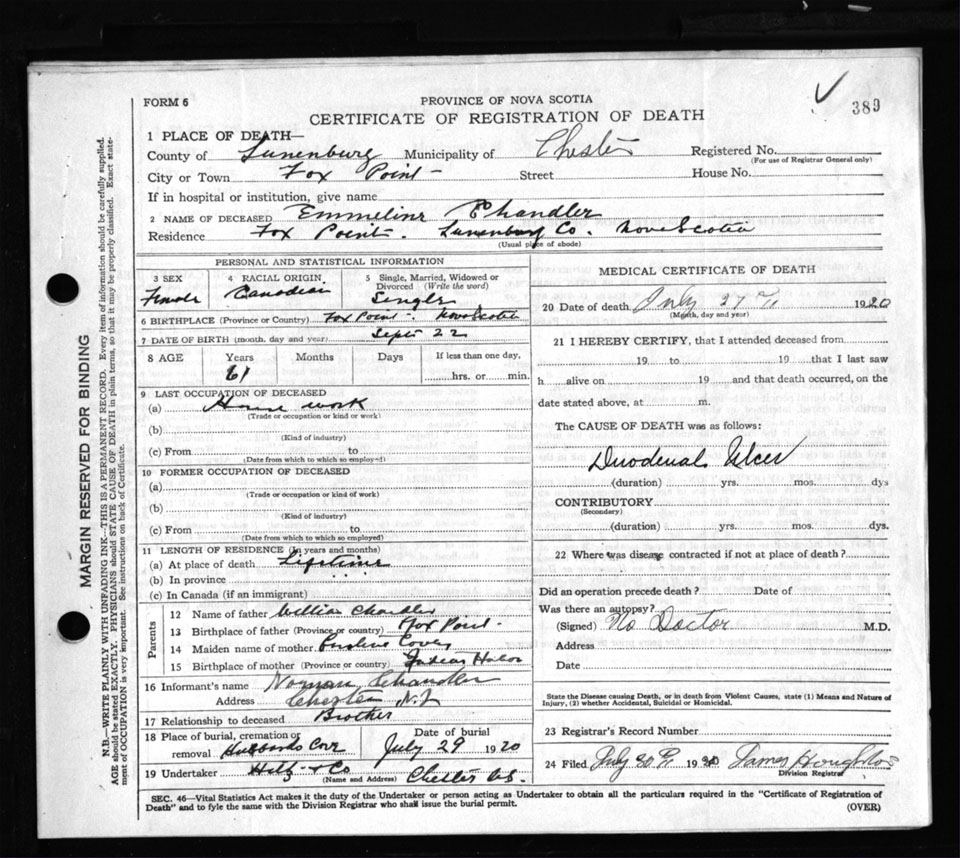 FORM 6
PROVINCE OF NOVA SCOTIA
389
CERTIFICATE OF REGISTRATION OF DEATH
1 PLACE OF DEATH—
County of Lunenburg Municipality of Chester Registered No.
(For use of Registrar General only)
City or Town Fox Point - Street House No.
If in hospital or institution, give name
2 NAME OF DECEASED Emmeline Chandler
Residence Fox Point - Lunenburg Co. Nova Scotia
(Usual place of abode)
PERSONAL AND STATISTICAL INFORMATION
3 SEX 4 RACIAL ORIGIN 5 Single, Married, Widowed or
Divorced (Write the word)
Female Canadian Single
6 BIRTHPLACE (Province or Country) Fox Point - Nova Scotia
7 DATE OF BIRTH (month, day and year) Sept 22
8 AGE Years Months Days If less than one day,
61 hrs. or min.
9 LAST OCCUPATION OF DECEASED
(a) House work
(Trade or occupation or kind of work)
(b)
(Kind of industry)
(c) From to
(Date from which to which so employed)
10 FORMER OCCUPATION OF DECEASED
(a)
(Trade or occupation or kind of work)
(b)
(Kind of industry)
(c) From to
(Date from which to which so employed)
11 LENGTH OF RESIDENCE (In years and months)
(a) At place of death Lifetime
(b) In province " "
(c) In Canada (if an immigrant)
Parents
12 Name of father William Chandler
13 Birthplace of father (Province or country) Fox Point -
14 Maiden name of mother Covey
15 Birthplace of mother (Province or country) Indian Habor
16 Informant's name Norman Chandler
Address Chester N.S
17 Relationship to deceased Brother
18 Place of burial, cremation or Date of burial
removal Hubbards Cove July 29 1920
19 Undertaker Hilz & Co Chester N.S.
(Name and Address)
MEDICAL CERTIFICATE OF DEATH
20 Date of death July 27 th 1920
(Month, day and year)
21 I HEREBY CERTIFY, that I attended deceased from
19 to 19 that I last saw
h alive on 19 and that death occurred, on the
date stated above, at m.
The CAUSE OF DEATH was as follows:
Duodenal Ulcer
(duration) yrs. mos. dys
CONTRIBUTORY
(Secondary)
(duration) yrs. mos. dys.
22 Where was disease contracted if not at place of death?
Did an operation precede death? Date of
Was there an autopsy?
(Signed) No Doctor M.D.
Address
Date
State the Disease causing Death, or in death from Violent Causes, state (1) Means and Nature of
Injury, (2) whether Accidental, Suicidal or Homicidal.
23 Registrar's Record Number
24 Filed July 30 th 1920 James Houghton
Division Registrar
SEC. 46—Vital Statistics Act makes it the duty of the Undertaker or person acting as Undertaker to obtain all the particulars required in the "Certificate of Registration of
Death" and to fyle the same with the Division Registrar who shall issue the burial permit.
(OVER)
MARGIN RESERVED FOR BINDING
N.B.—WRITE PLAINLY WITH UNFADING INK—THIS IS A PERMANENT RECORD. Every item of information should be carefully supplied.
AGE should be stated EXACTLY. PHYSICIANS should STATE CAUSE OF DEATH in plain terms, so that it may be properly classified. Exact state-
ment of OCCUPATION is very important. See instructions on back of Certificate.